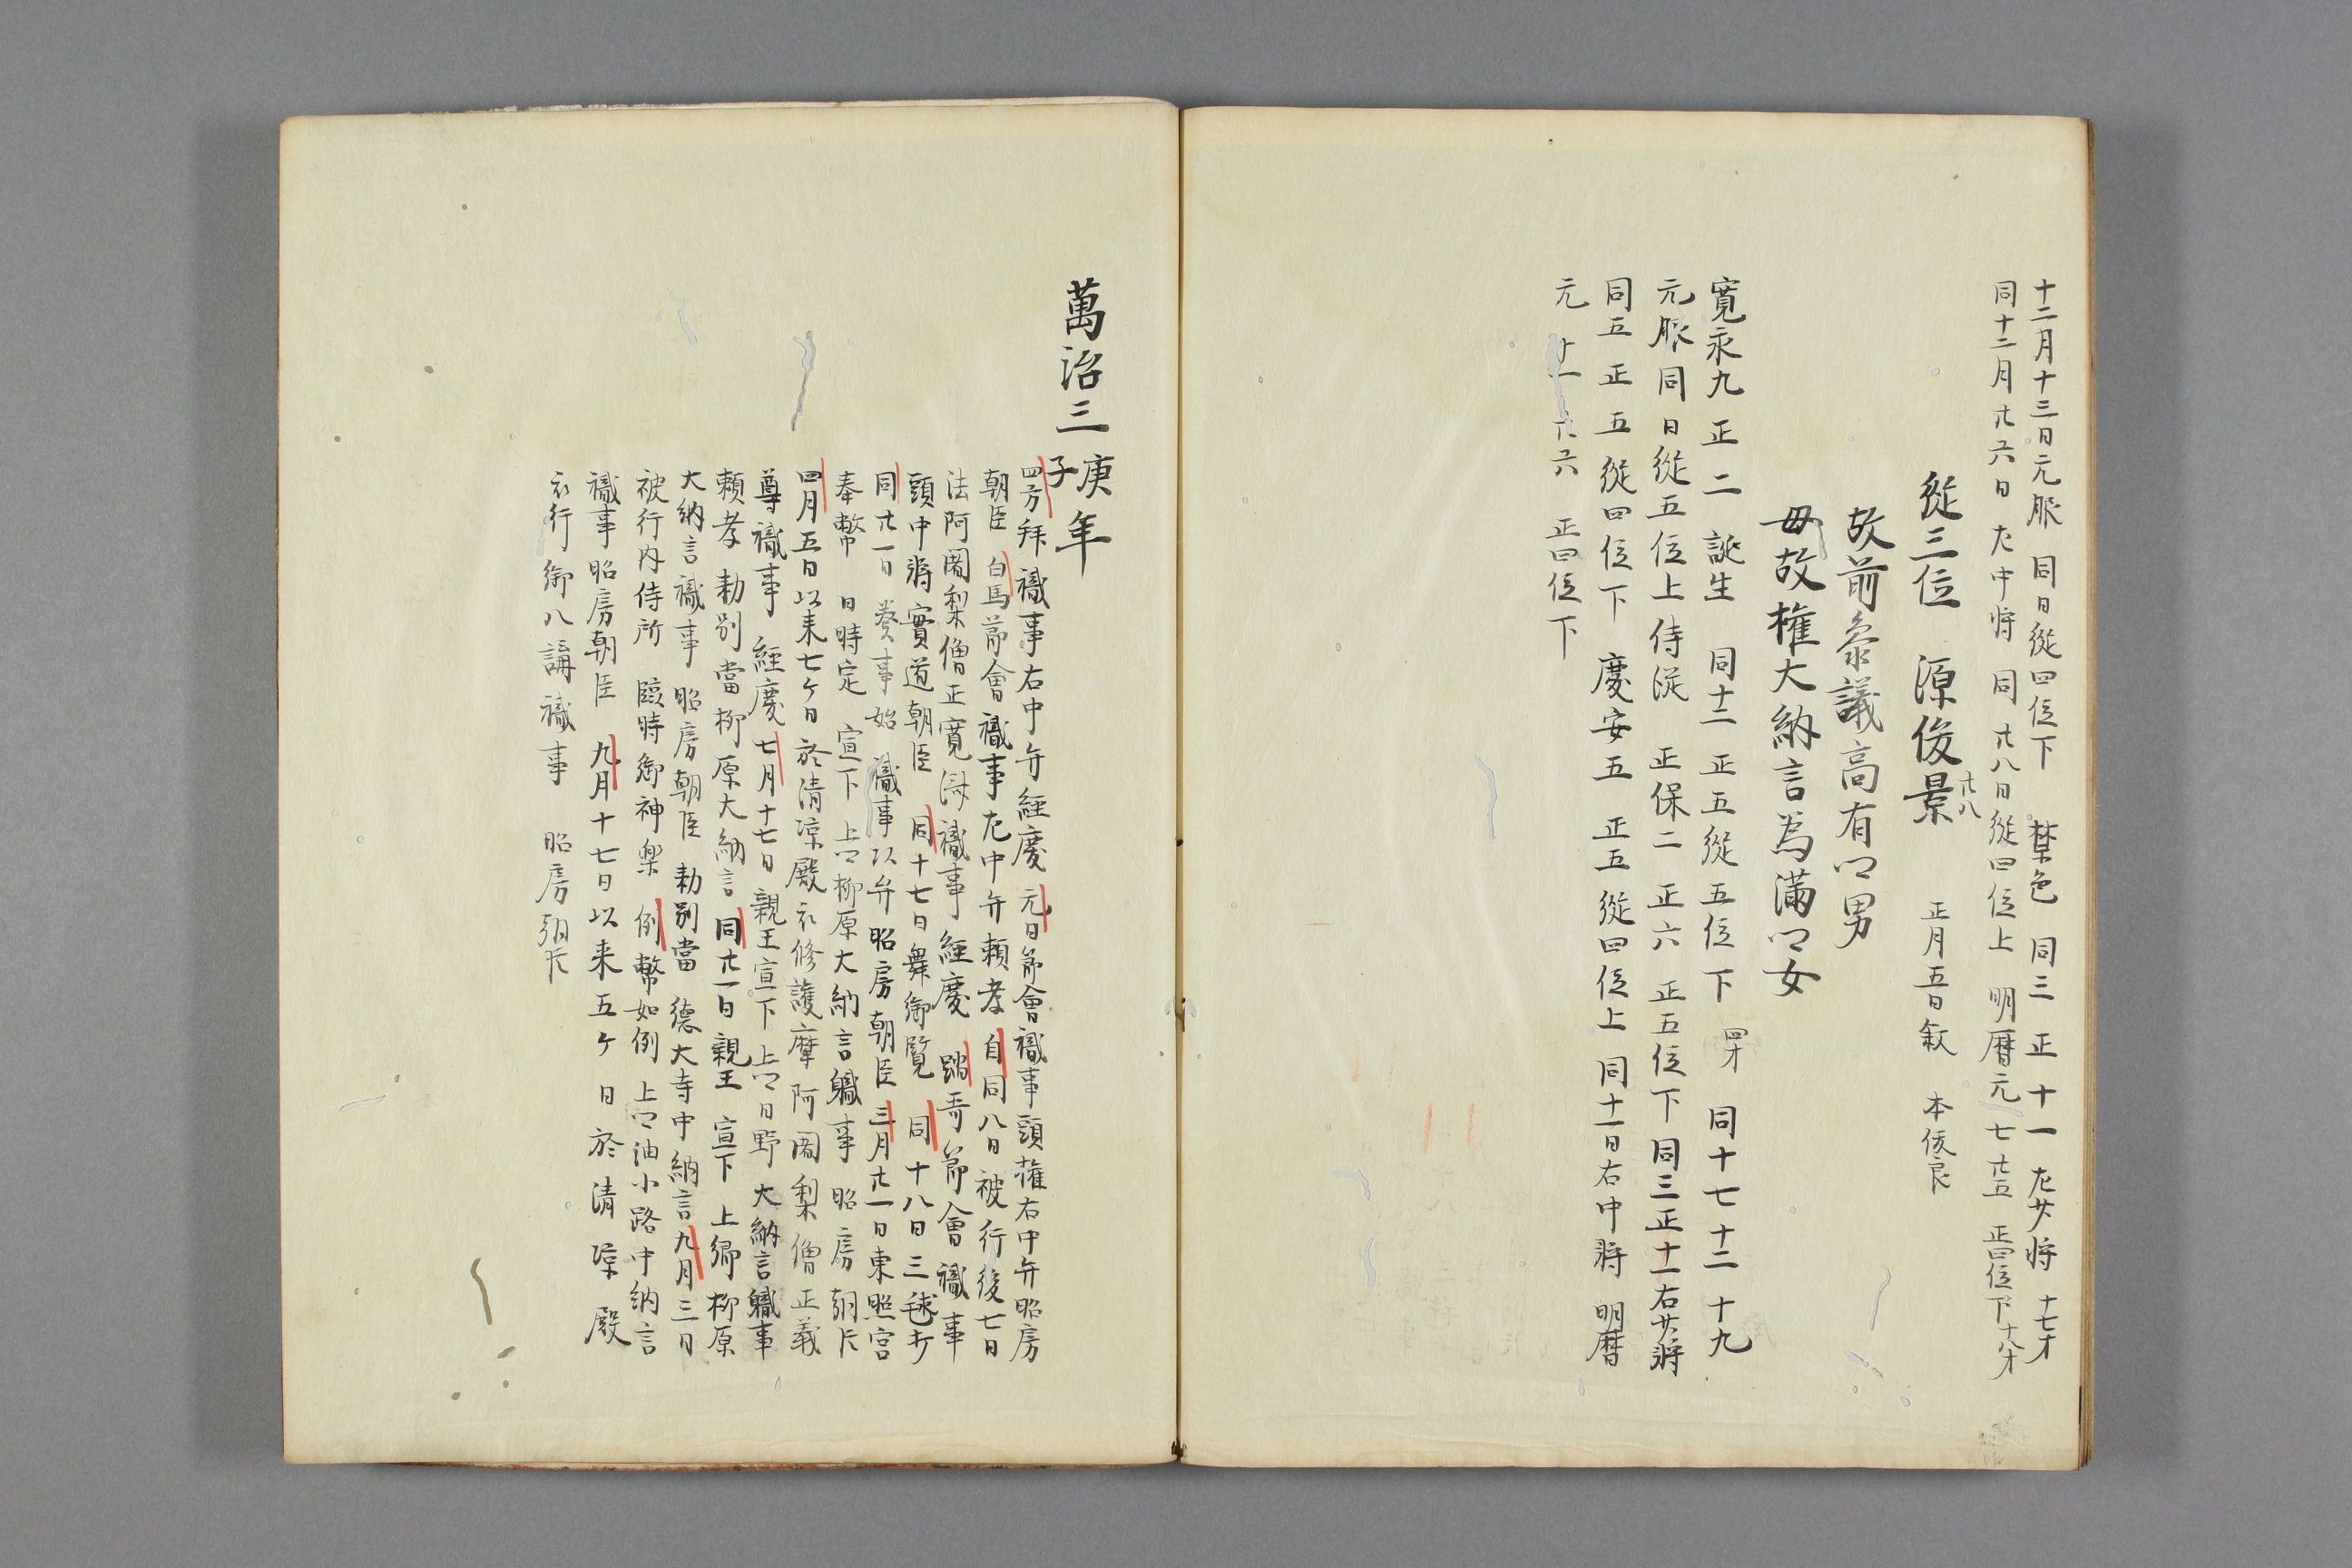 十二月十三日元服 同日從四位下 禁色 同三 正 十一 左少将 十七才
同十二月廿六日 左中将 同 廿八日從四位上 明曆元 七 廿五 正四位下 十八才
從三位 源俊景 廿八 正月五日叙 本俊良
故前參議高有卿男
母故權大納言為滿卿女
寛永九 正 二 誕生 同十二 正五 從五位下 四才 同十七 十二 十九
元服 同日從五位上 侍従 正保二 正六 正五位下 同三 正 十一 右少將
同五 正 五 從四位下 慶安五 正五 從四位上 同十一日右中將 明曆
元 十一 廿六 正四位下
萬治三庚子年
四方拜 職事右中弁經慶 元日節會職事頭權右中弁昭房
朝臣 白馬節會職事左中弁賴孝 自同八日被行後七日
法阿闍梨僧正寛済 職事 經慶 踏哥節會職事
頭中將實道朝臣 同十七日舞御覧 同十八日三毬打
同廿一日 奏事始 職事以弁昭房朝臣 三月廿一日東照宮
奉幣 日時定 宣下 上卿柳原大納言職事 昭房朝臣
四月五日以来七ケ日 於清凉殿被修護摩 阿闍梨僧正義
尊職事 經慶 七月十七日親王宣下 上卿日野大納言職事
賴孝 勅別當柳原大納言 同廿一日親王 宣下 上卿 柳原
大納言職事 昭房朝臣 勅別當 德大寺中納言 九月三日
被行内侍所 臨時御神樂 例幣如例 上卿油小路中納言
職事昭房朝臣 九月十七日以来五ケ日 於清凉殿
被行御八講職事 昭房朝臣